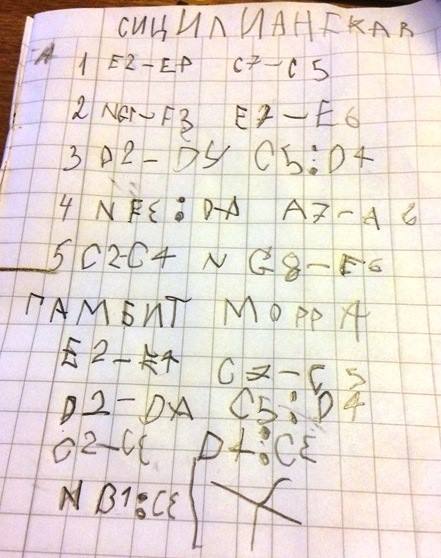 СИЦИЛИАНСКАЯ
А
1 E2-E4 C7-C5
2 NG1-F3 E7-E6
3 D2-D4 C5:D4
4 NF3:D4 A7-A6
5 C2-C4 NG8-F6
ГАМБИТ МОРРА
E2-E4 C7-C5
D2-D4 C5:D4
C2-C3 D4:C3
NB1:C3